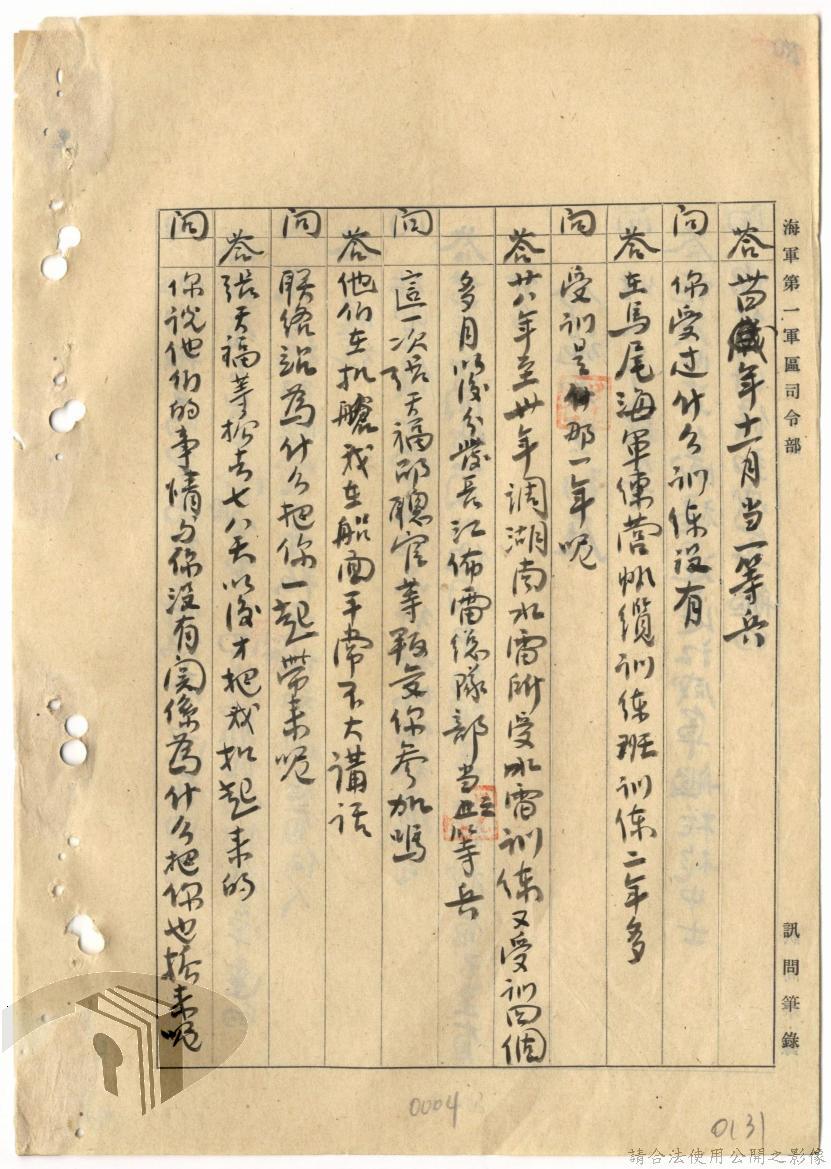 海軍第一軍區司令部 訊問筆錄
答 年十一月当一等兵
问 你受过什么训练沒有
答 在馬尾海軍練营帆纜训练班训练二年多
问 受训是那一年呢
答 廿八年至卅年调湖南水雷所受水雷训练又受训四個
多月以後分發長江佈雷總隊部当 等兵
问 這一次張天福邱聰官等叛变你参加嗎
答 他们在机艙我在船面平常不大講话
问 联络站為什么把你一起带来呢
答 張天福等扣去七八天以後才把我扣起来的
问 你说他们的事情与你没有関係為什么把你也抓来呢
0004
0131
請合法使用公開之影像